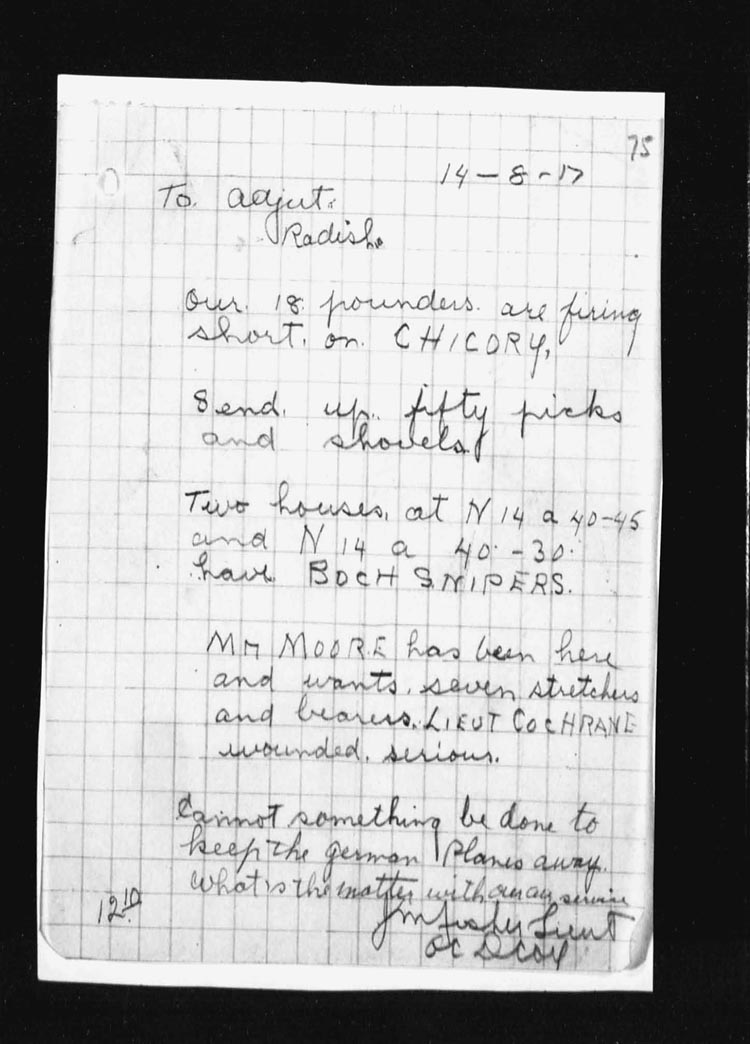 75
14-8-17
To. Adjut.
Radish.
Our. 18. pounders. are firing
short. on. CHICORY,
Send. up. fifty picks
and shovels
Two houses. at N 14 a 40-45
and N 14 a 40.-30.
have BOCH SNIPERS.
MR MOORE has been here
and wants. seven stretchers
and bearers. LIEUT COCHRANE
wounded. serious.
Cannot something be done to
keep the german Planes away.
What is the matter with our air service
12.10
Lieut
OC D Coy